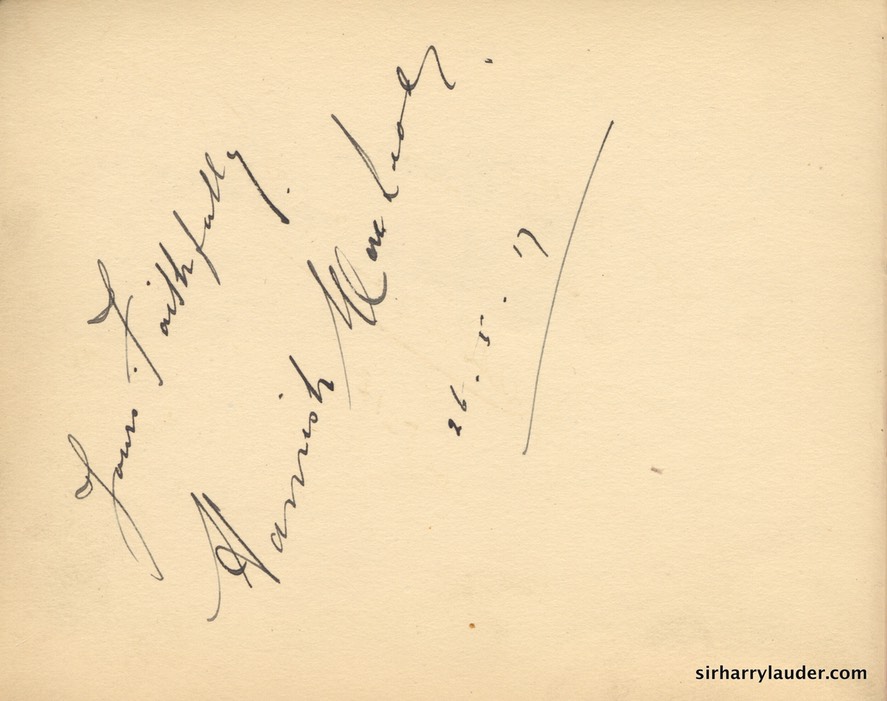 Yours Faithfully.
Hamish
26. 5. 17
sirharrylauder.com